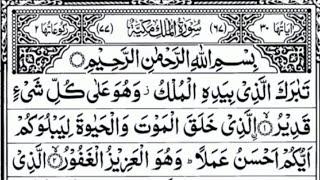 اٰیَاتُهَا ٣٠ (٦٧) سُوْرَةُ الْمُلْكِ مَكِّیَّةٌ (٧٧) رُكُوْعَاتُهَا ٢
بِسْمِ اللّٰهِ الرَّحْمٰنِ الرَّحِیْمِ
تَبٰرَكَ الَّذِیْ بِیَدِهِ الْمُلْكُ ز وَهُوَ عَلٰى كُلِّ شَیْءٍ
قَدِیْرُ ۨ ۝١ الَّذِیْ خَلَقَ الْمَوْتَ وَالْحَیٰوةَ لِیَبْلُوَكُمْ
اَیُّكُمْ اَحْسَنُ عَمَلًا ؕ وَهُوَ الْعَزِیْزُ الْغَفُوْرُ ۝٢ الَّذِیْ